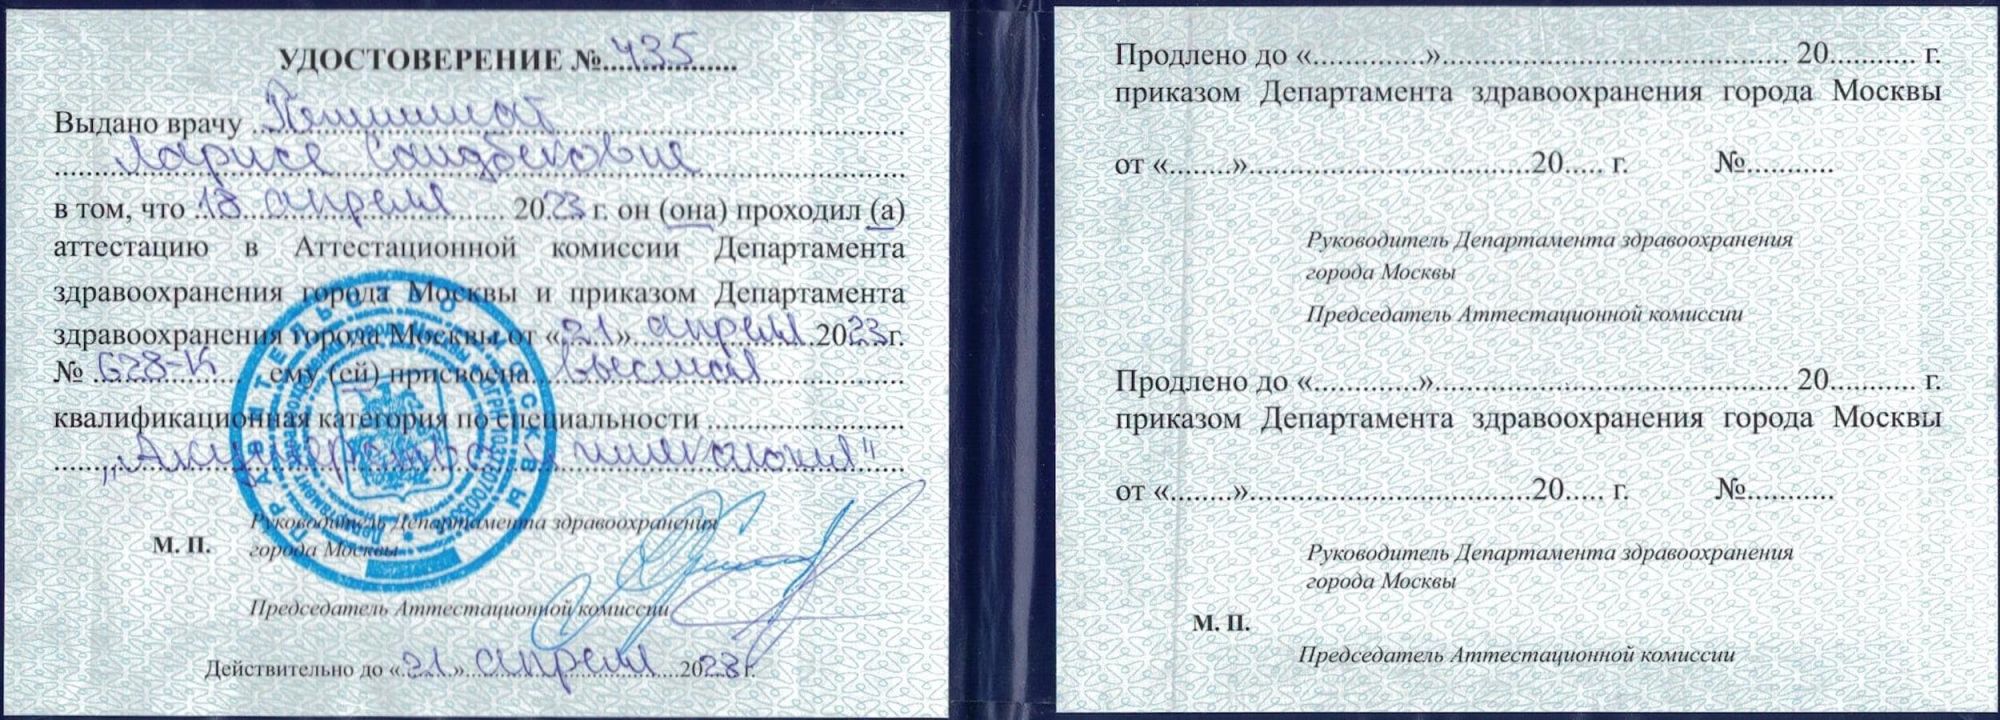 УДОСТОВЕРЕНИЕ № 435
Выдано врачу
Ларисе Саидбековне
в том, что 18 апреля 2023 г. он (она) проходил (а)
аттестацию в Аттестационной комиссии Департамента
здравоохранения города Москвы и приказом Департамента
здравоохранения города Москвы от «21» апреля 2023г.
№ 628-К ему (ей) присвоена высшая
квалификационная категория по специальности
"Акушерство и гинекология"
ПРАВИТЕЛЬСТВО МОСКВЫ
Руководитель Департамента здравоохранения
М. П. города Москвы
Председатель Аттестационной комиссии
Действительно до «21» апреля 2028 г.
Продлено до «..............»................................................ 20........... г.
приказом Департамента здравоохранения города Москвы
от «........»......................................20..... г. №...........
Руководитель Департамента здравоохранения
города Москвы
Председатель Аттестационной комиссии
Продлено до «..............»................................................ 20........... г.
приказом Департамента здравоохранения города Москвы
от «........»......................................20..... г. №...........
Руководитель Департамента здравоохранения
города Москвы
М. П.
Председатель Аттестационной комиссии